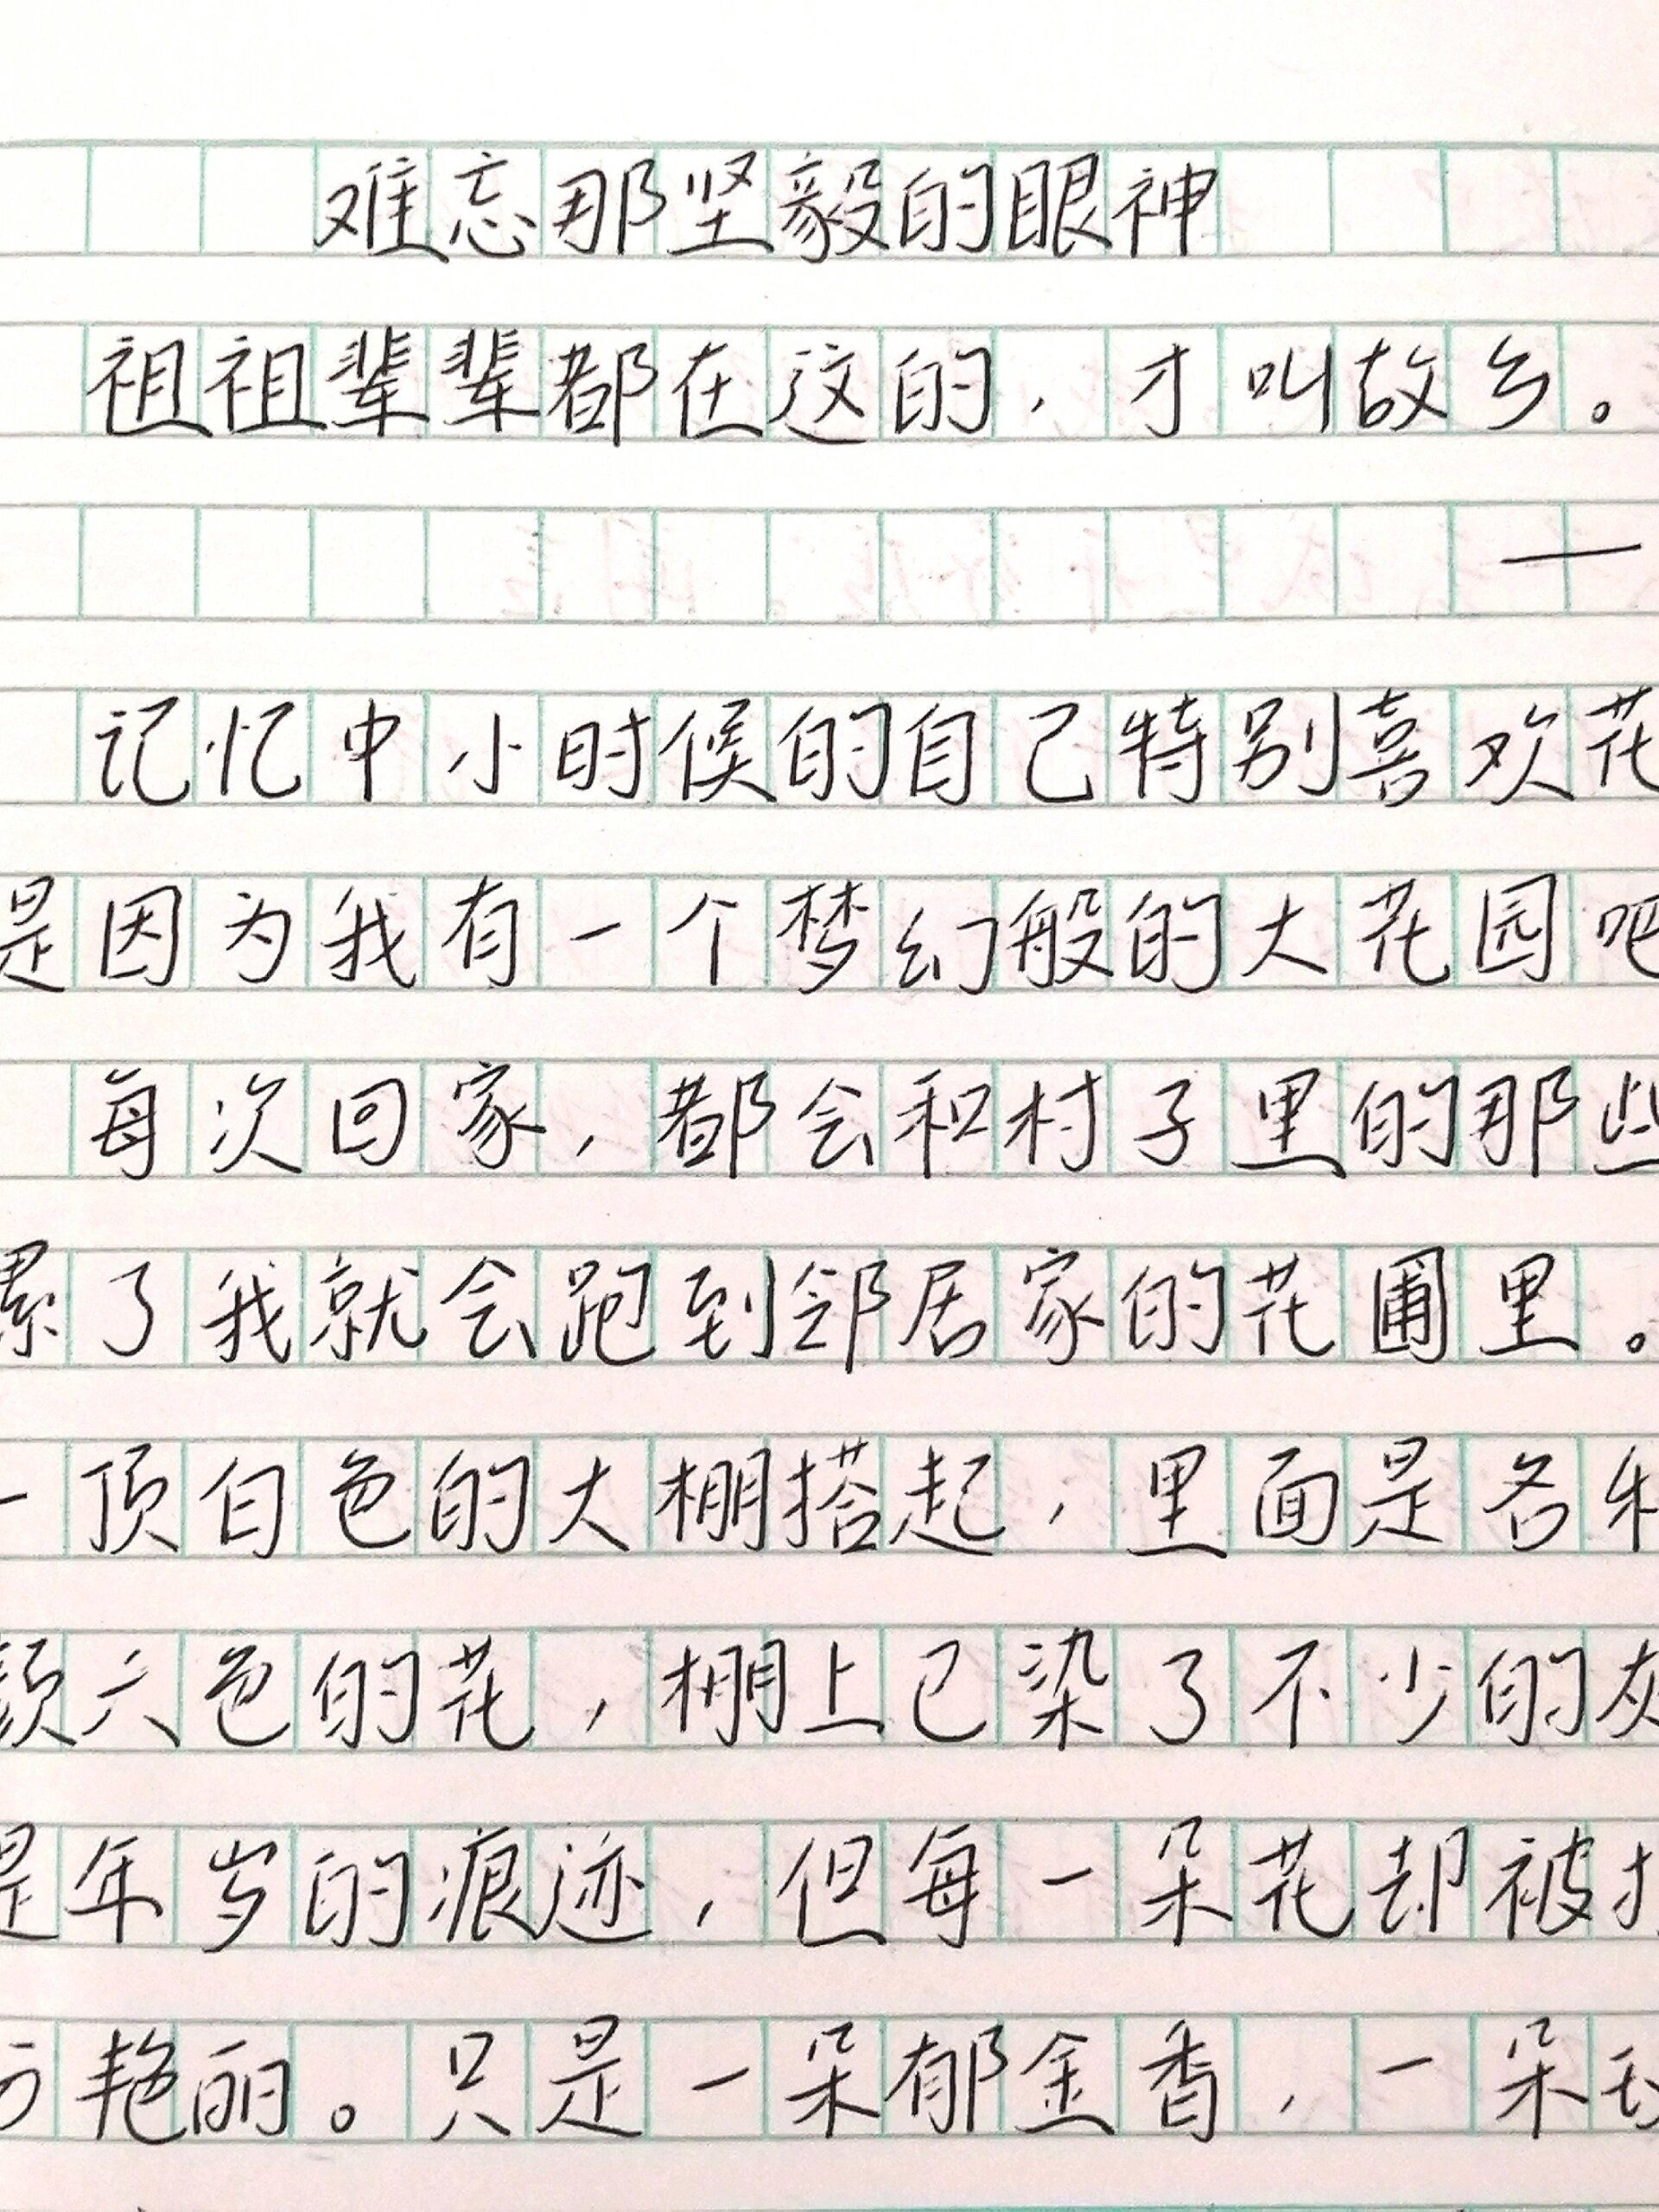 难忘那坚毅的眼神
祖祖辈辈都在这的，才叫故乡。
—
记忆中小时候的自己特别喜欢花
是因为我有一个梦幻般的大花园吧
每次回家，都会和村子里的那些
累了我就会跑到邻居家的花圃里。
一顶白色的大棚搭起，里面是各种
颜六色的花，棚上已染了不少的灰
是年岁的痕迹，但每一朵花却被
艳丽。只是一朵郁金香，一朵